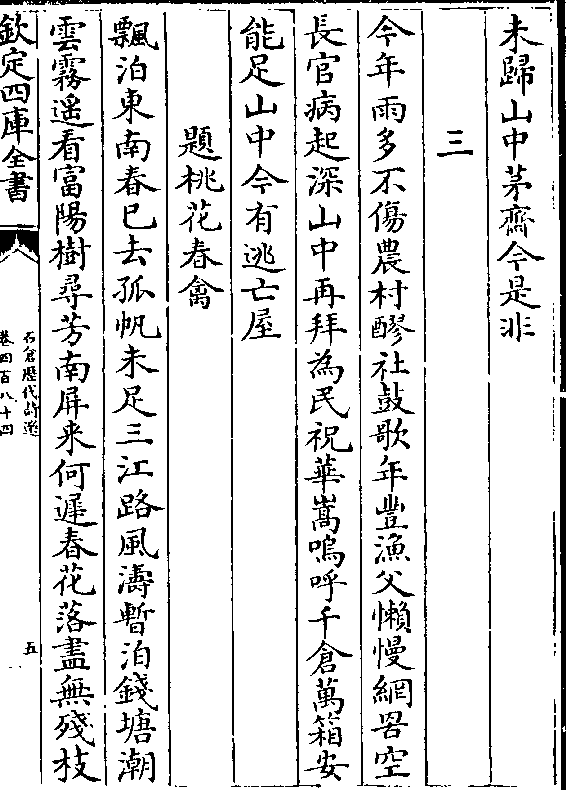 未歸山中茅齋今是非
三
今年雨多不傷農村醪社鼓歌年豐漁父懶慢網罟空
長官病起深山中再拜為民祝華嵩嗚呼千倉萬箱安
能足山中今有逃亡屋
題桃花春禽
飄泊東南春已去孤帆未足三江路風濤暫泊錢塘潮
雲霧遥看富陽樹尋芳南屏来何遲春花落盡無殘枝
欽定四庫全書
石倉歷代詩選
卷四百八十四
五